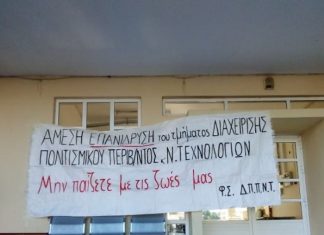 ΑΜΕΣΗ ΕΠΑΝΙΔΡΥΣΗ του τμήματος ΔΙΑΧΕΙΡΙΣΗΣ
ΠΟΛΙΤΙΣΜΙΚΟΥ ΠΕΡΙΒ/ΝΤΟΣ & Ν. ΤΕΧΝΟΛΟΓΙΩΝ
Μην παίζετε με τις ζωές μας
Φ.Σ. Δ.Π.Π.Ν.Τ.